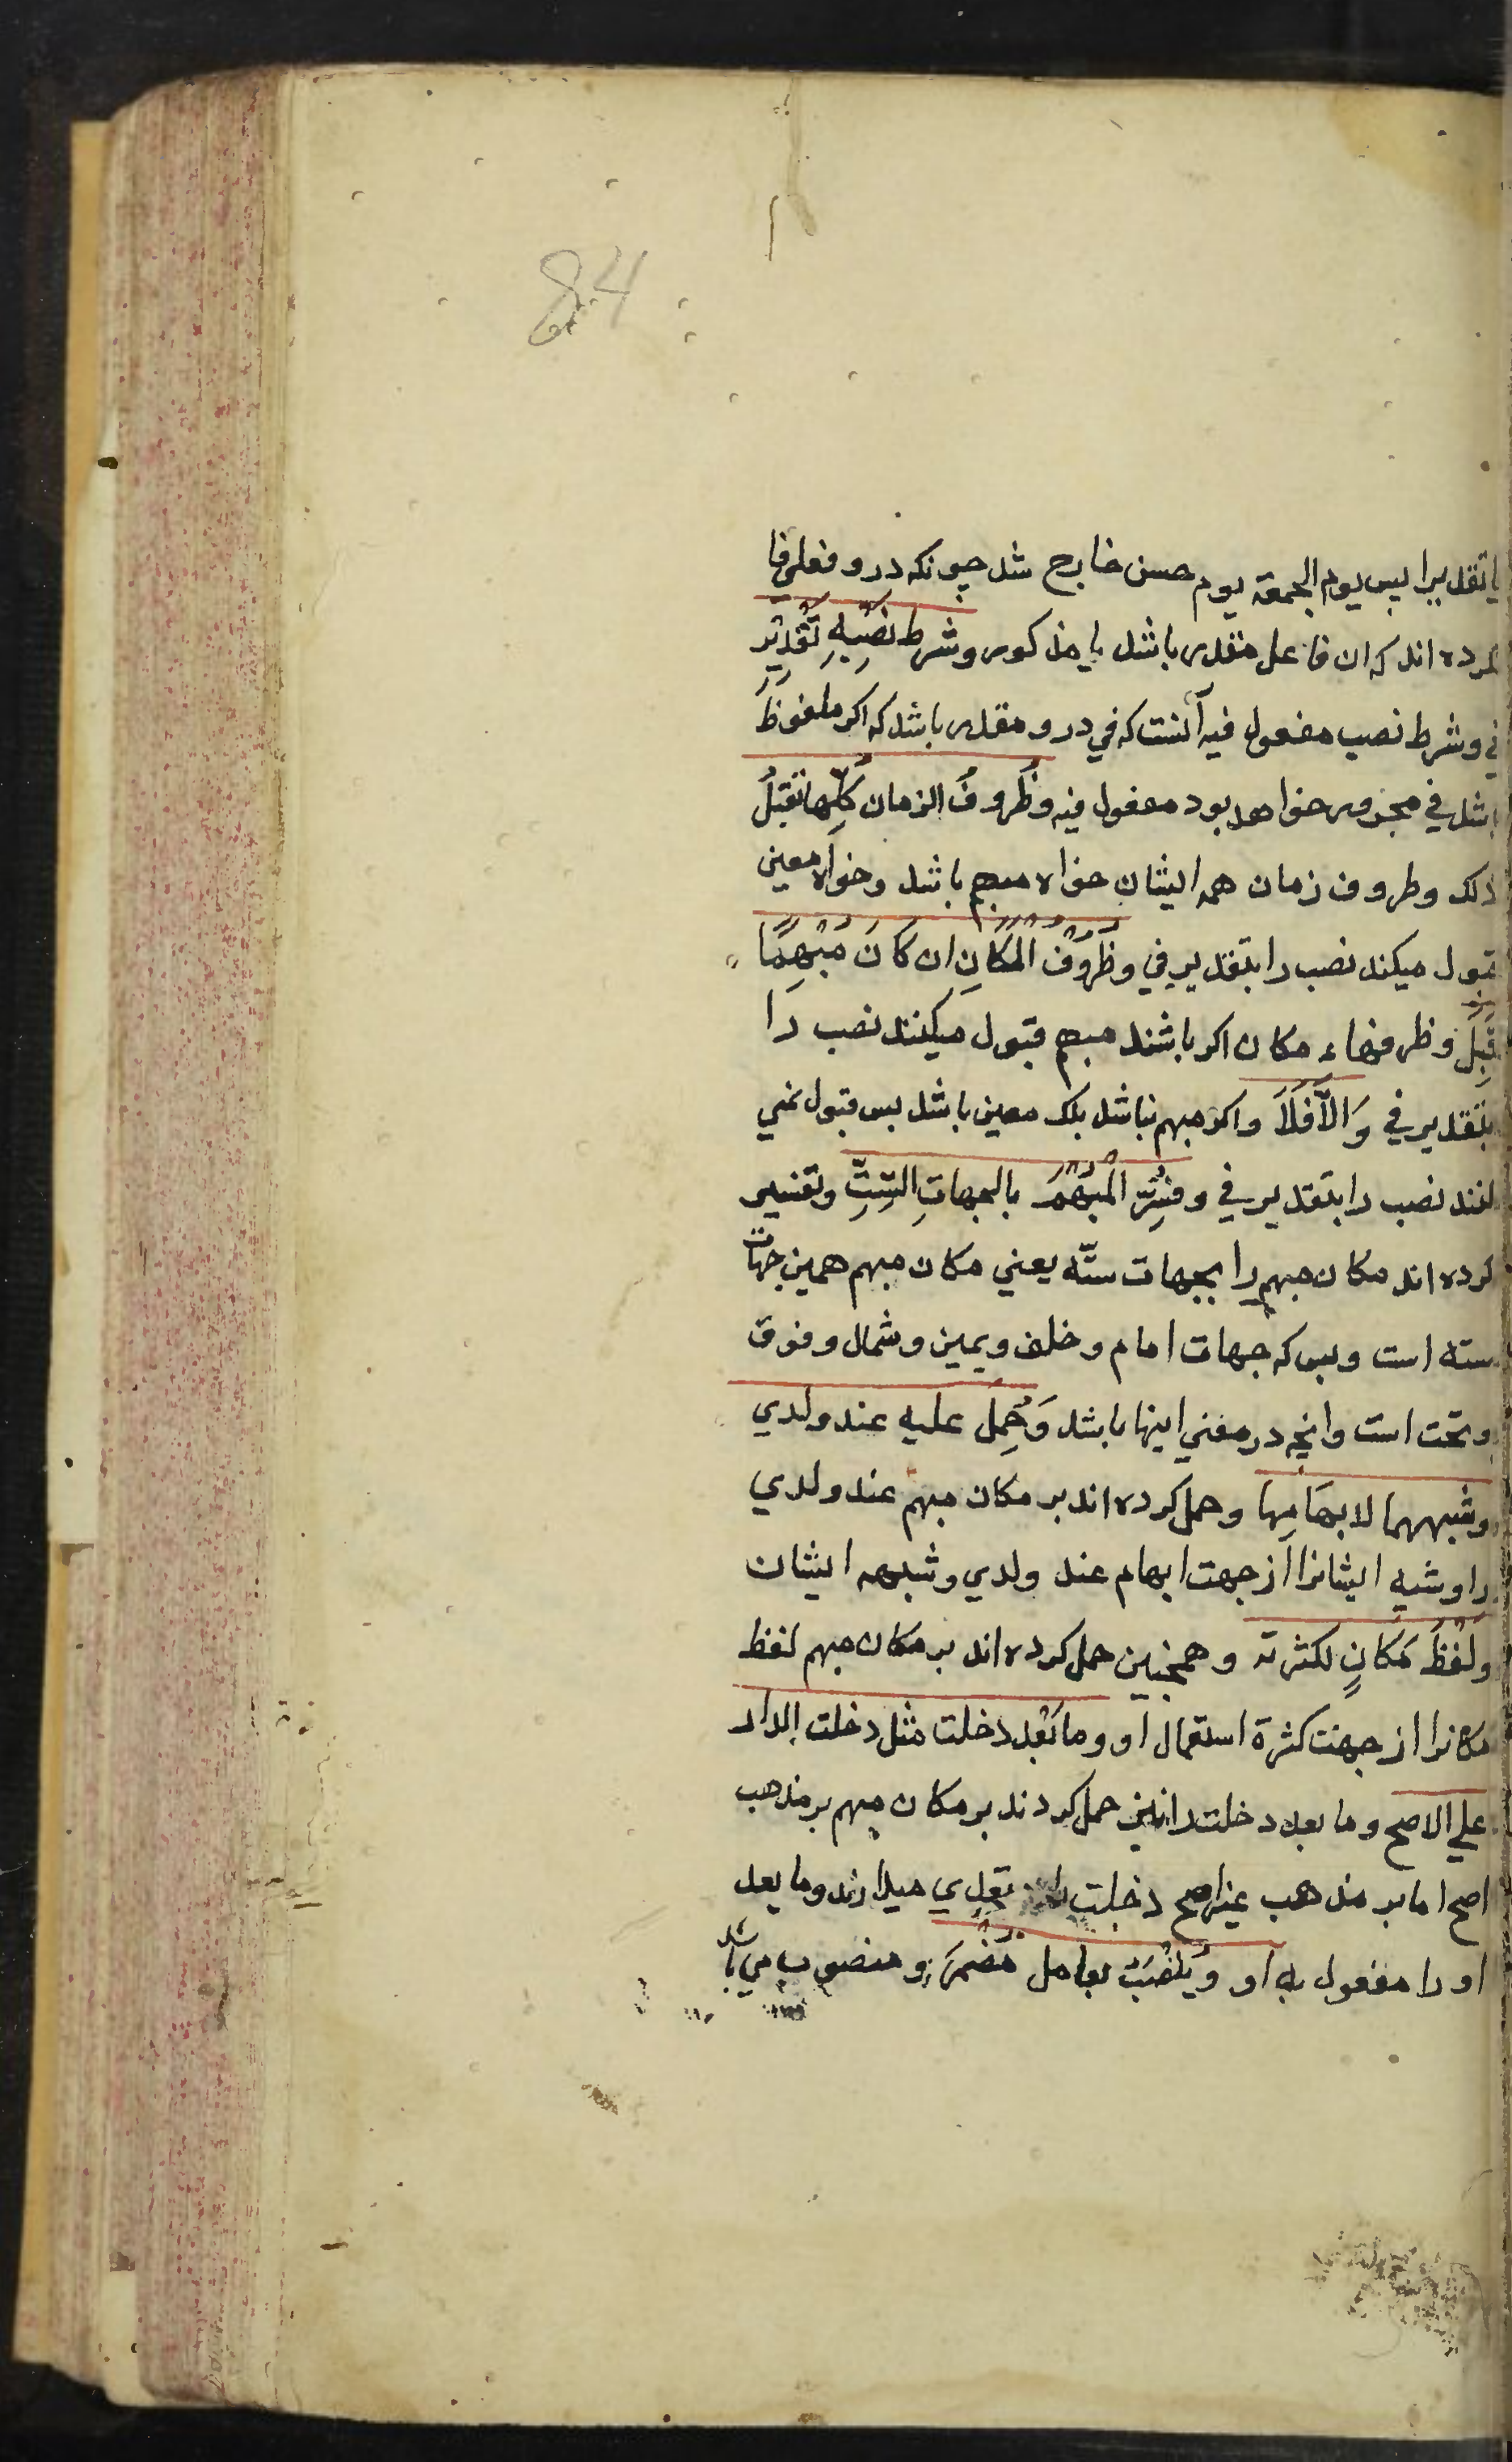 84
یا تقدیرا پس یوم الجمعة یوم حسن خارج شد چونکه درو فعلی فا
کرده اند که ان فاعل مقدر باشد یا مذکور و شرط نَصْبِهِ تَقْدِیرُ
فی و شرط نصب مفعول فیه آنست که في درو مقدر باشد که اکر ملفوظ
باشد في مجرور خواهد بود مفعول فیه وَظُرُوفُ الزمان کُلُّها تَقْبَلُ
ذلک وظروف زمان همه ایشان خواه مبهم باشد وخواه معین
قبول میکند نصب را بتقدیر في وظُرُوفُ الْمَکَانِ ان کَانَ مُبْهَمًا
قَبِلَ وظرفهاء مکان اکر باشند مبهم قبول میکنند نصب را
بتقدیر في وَالَّا فَلَا واکر مبهم نباشد بلکه معین باشد پس قبول نمي
کنند نصب را بتقدیر في وفُسِّرَ الْمُبْهَمُ بالجهاتِ السِّتِّ وتفسیر
کرده اند مکان مبهم را بجهات ستّه یعني مکان مبهم همین جهات
سته است وبس که جهات امام وخلف ویمین وشمال وفوق
وتحت است وانچه در معني اینها باشد وَحُمِلَ علیه عند ولدي
وشبههما لابهَامِها وحمل کرده اند بر مکان مبهم عند ولدي
را وشبه ایشانرا از جهت ابهام عند ولدي وشبهه ایشان
ولَفْظُ مَکَانٍ لکثرته وهمچنین حمل کرده اند بر مکان مبهم لفظ
مکانرا از جهت کثرة استعمال او وما بَعْد دخلت مثل دخلت الدار
علي الاصح وما بعد دخلت را نیز حمل کردند بر مکان مبهم بر مذهب
اصح اما بر مذهب غیر اصح دخلت تعدي میدارند وما بعد
او را مفعول به او وَیُنْصَبُ بعامل مُضْمَرٍ ومنصوب مي باشد